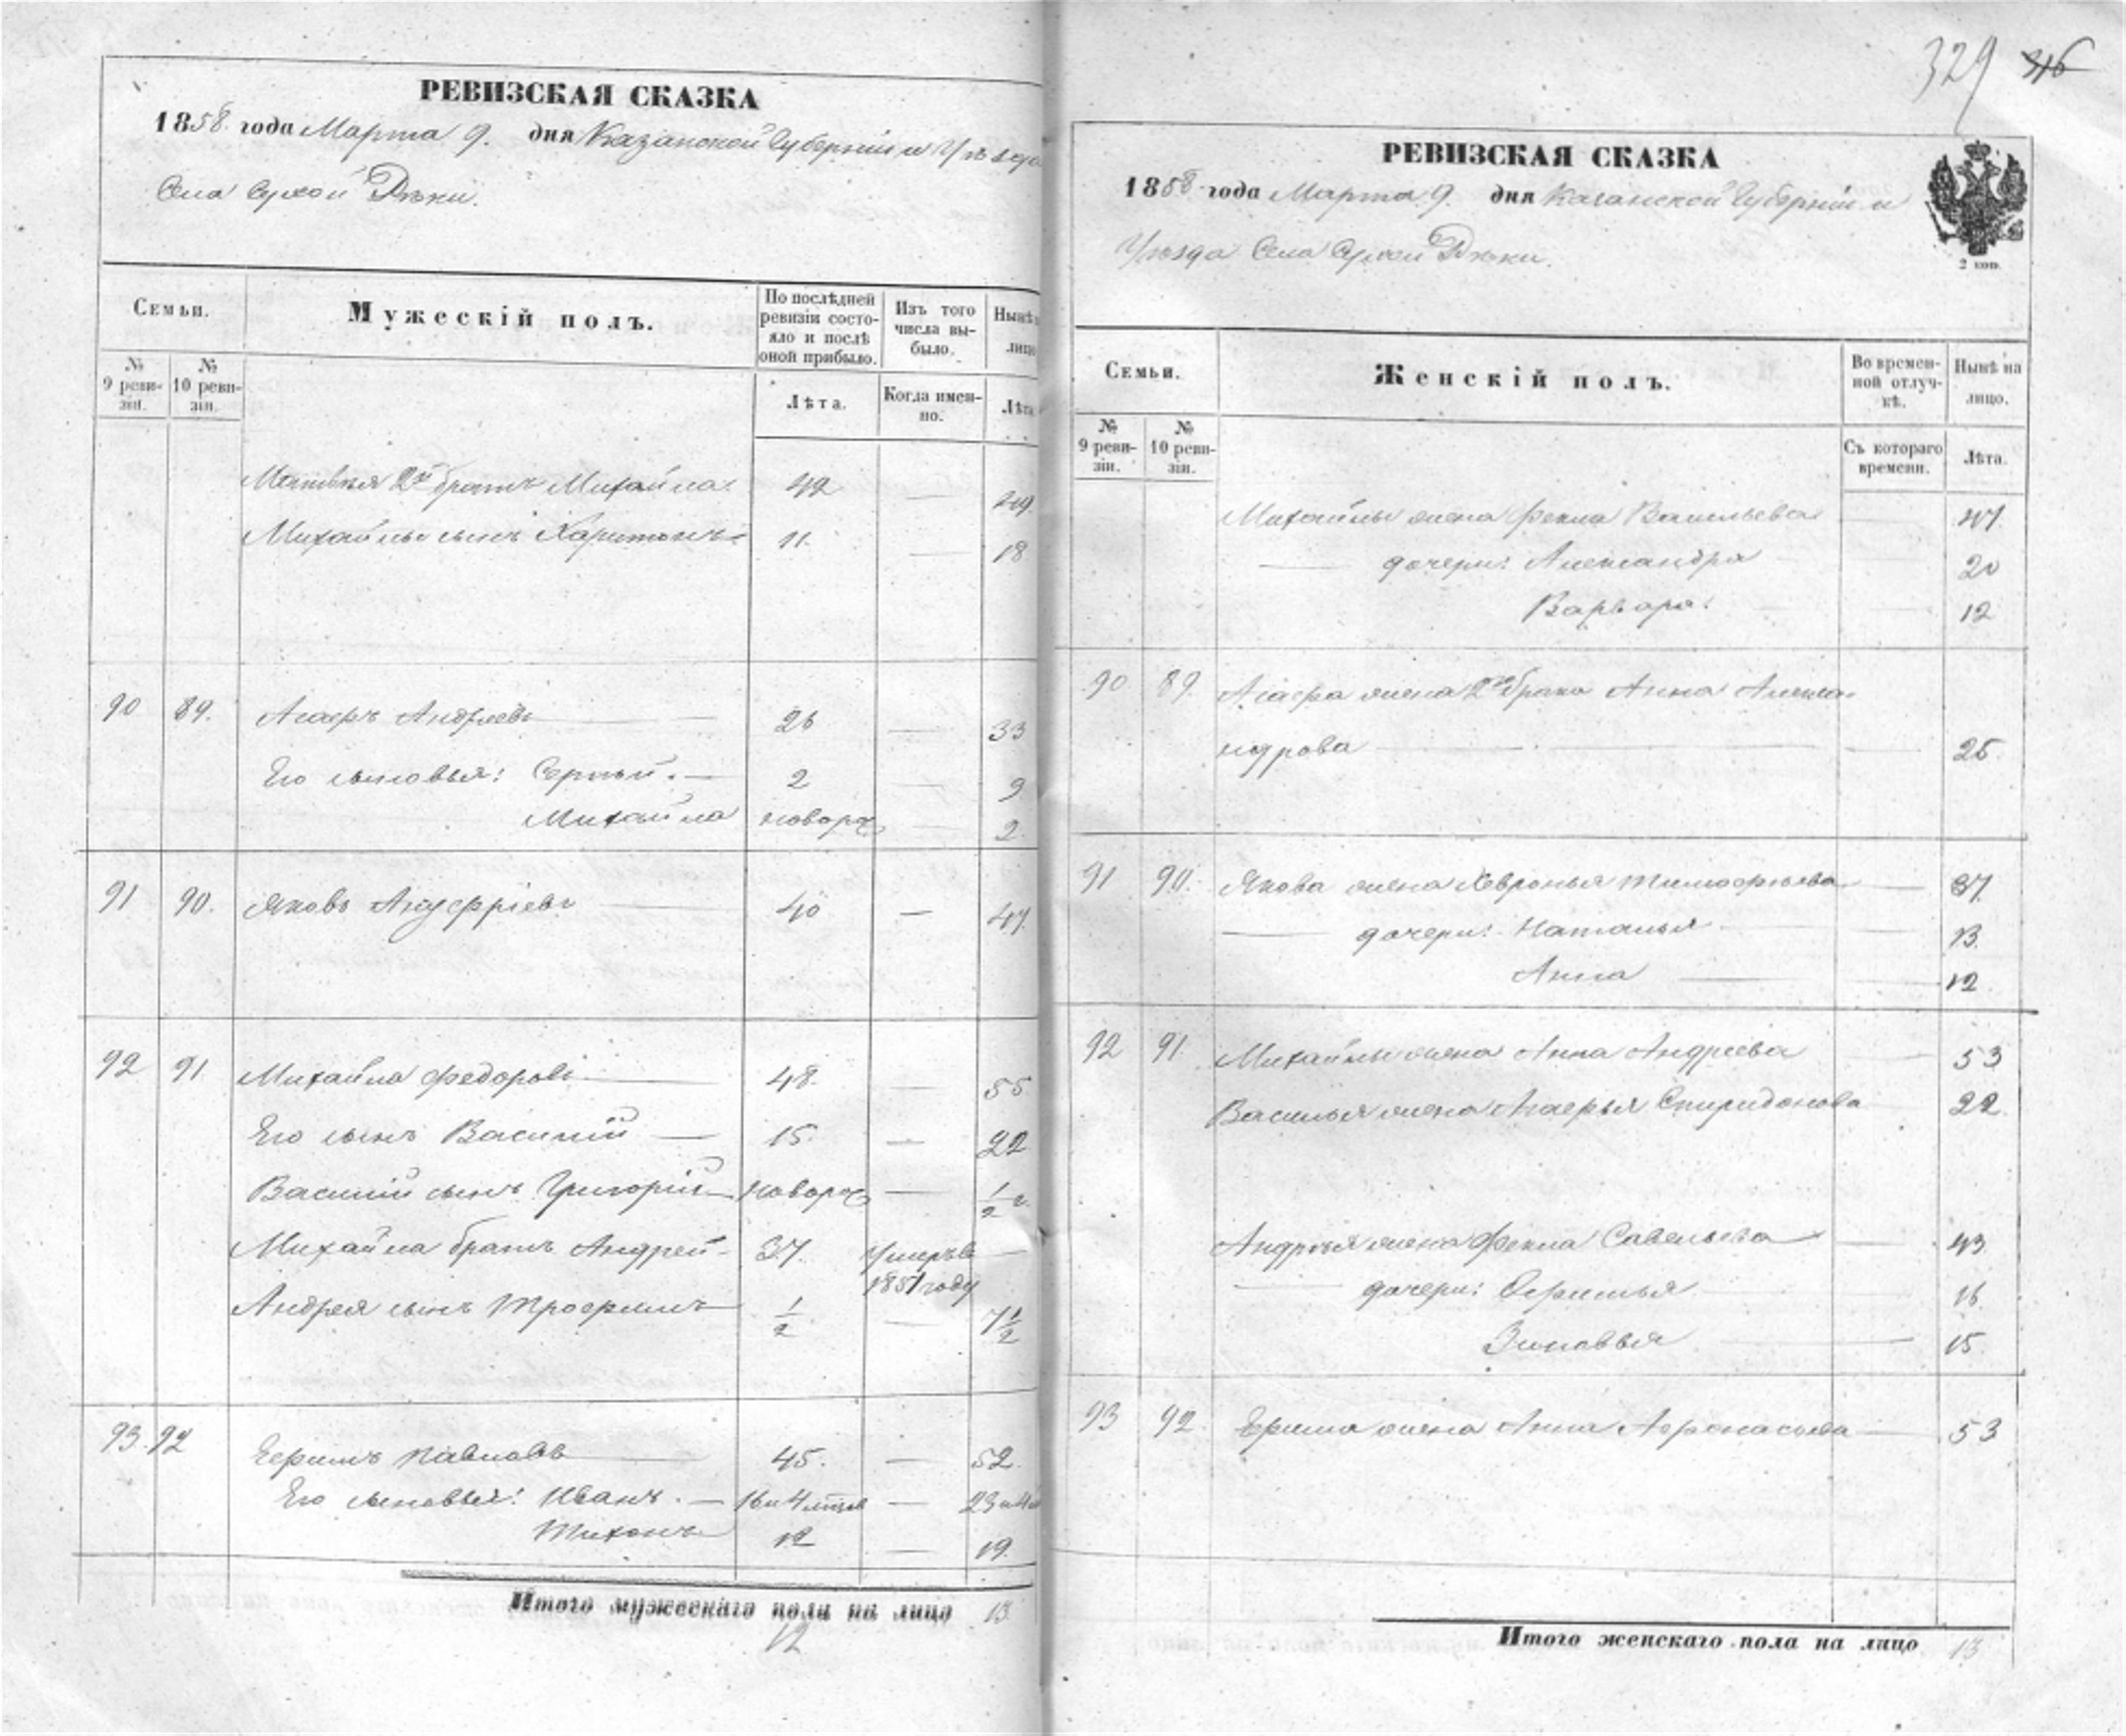 РЕВИЗСКАЯ СКАЗКА
1858 года Марта 9. дня Казанской Губерніи и Уѣзда
Села Сухой Рѣки.
Семьи.
Мужескій полъ.
По послѣдней ревизіи состояло и послѣ оной прибыло.
Изъ того числа выбыло.
Нынѣ лицо
№ 9 ревизіи.
№ 10 ревизіи.
Лѣта.
Когда именно.
Лѣта
Матвѣя 2й братъ Михайла 42 — 49
Михайлы сынъ Харитонъ 11. — 18
90 89. Андреевъ 26 — 33
Его сыновья: Сергѣй. — 2 — 9
Михайла новорож — 2.
91 90. Яковъ 40 — 47.
92 91 Михайла Федоровъ 48. — 55
Его сынъ Василій — 15. — 22
Василія сынъ Григорій новорож — 1/2 г.
Михайла братъ Андрей 37. Умеръ въ 1851 году —
Андрея сынъ Трофимъ 1/2 — 7 1/2
93. 92 Ефимъ Павловъ 45. — 52.
Его сыновья: Иванъ. — 16 и 4 мѣсяц — 23 и 4
Тихонъ 12 — 19.
Итого мужескаго пола на лицо 13
12
329 316
РЕВИЗСКАЯ СКАЗКА
1858 года Марта 9. дня Казанской Губерніи и
Уѣзда Села Сухой Рѣки.
2 коп.
Семьи.
Женскій полъ.
Во временной отлучкѣ.
Нынѣ на лицо.
№ 9 ревизіи.
№ 10 ревизіи.
Съ котораго времени.
Лѣта.
Михайлы жена Фекла Васильева — 47.
— дочери: Александра 20
Варвара. 12
90 89. жена 2го брака Анна Алекса-
ндрова — 25.
91 90. Якова жена Хевронья Тимофѣева — 37.
— дочери: Наталья 13.
Анна — 12.
92 91. Михайлы жена Анна Андреева — 53
Василья жена Спиридонова 22.
Андрея жена Фекла Савельева — 43
— дочери: 16
Зиновья — 15.
93 92. Ефима жена Анна Афонасьева — 53
Итого женскаго пола на лицо 13